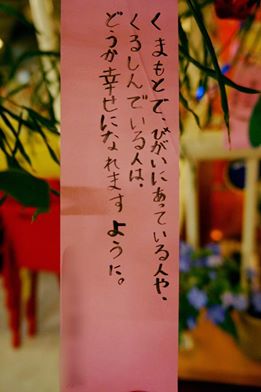 くまもとで、ひがいにあっている人や、
くるしんでいる人は、
どうか幸せになれますように。